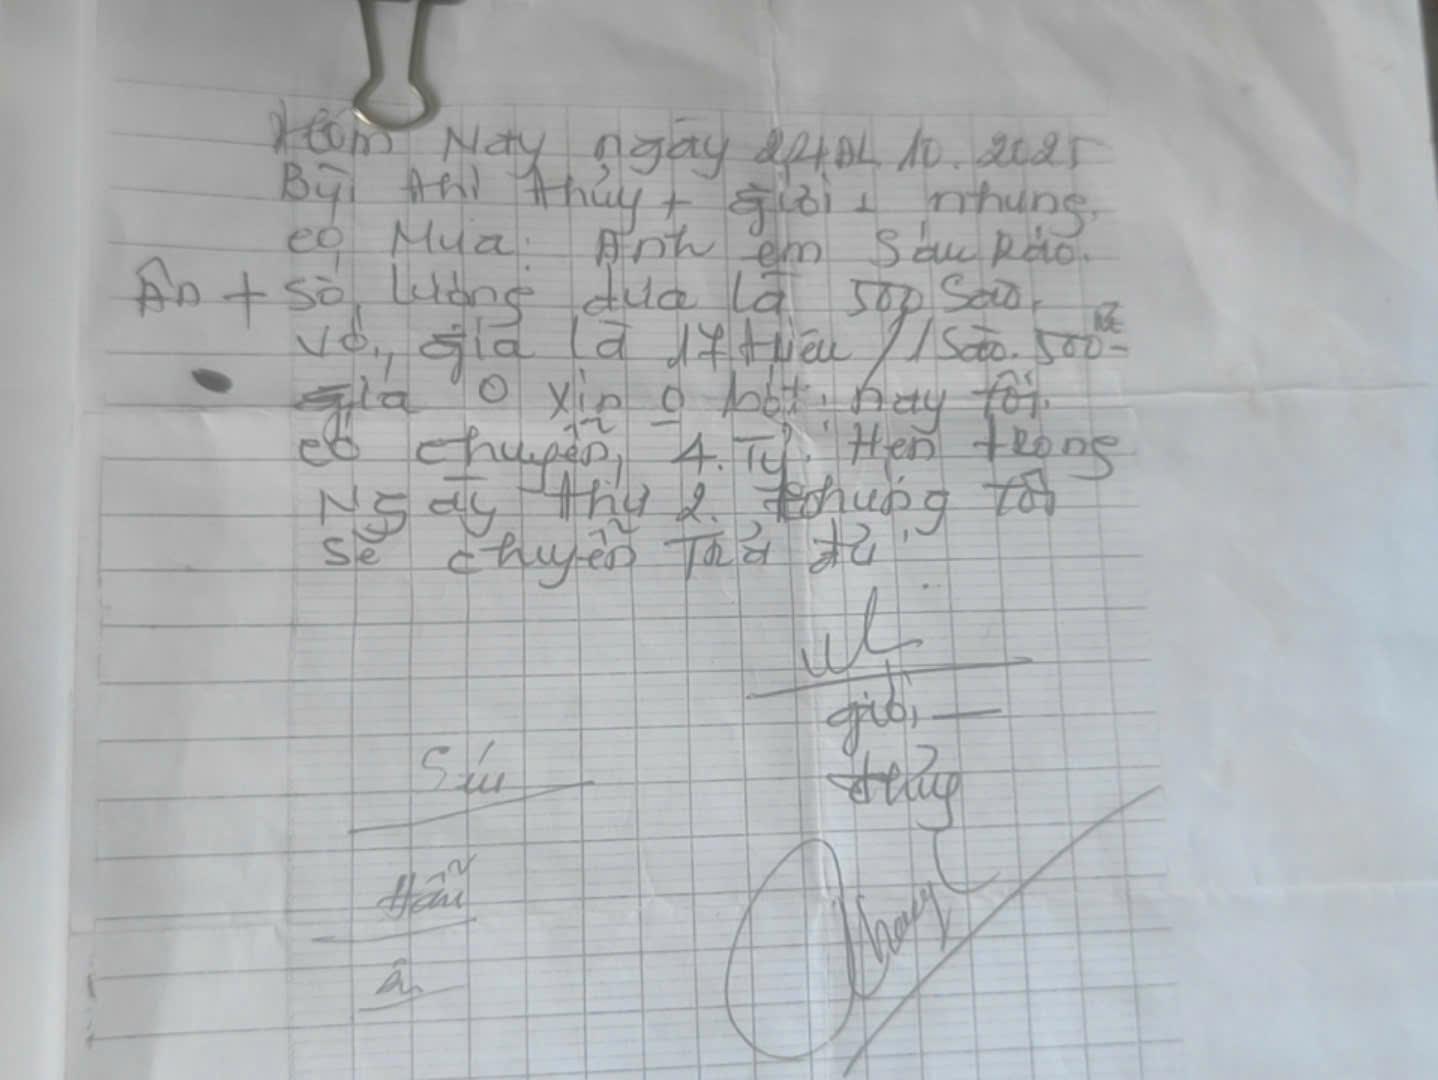 Hôm Nay ngày 24 AL 10. 2025
Bùi thì thủy + giỏi + nhung.
có Mua. Anh em Sáu Ráo.
Ân + số lượng dưa là 500 Sào.
với giá là 17 triệu /1 Sào. 500
giá 0 xin 0 bớt. nay tôi.
có chuyển, 4. Tỷ. Hẹn trong
Ngày thứ 2. chúng tôi
sẽ chuyển Trả đủ
giỏi
thủy
Sáu
Hẩu
ân
Nhung